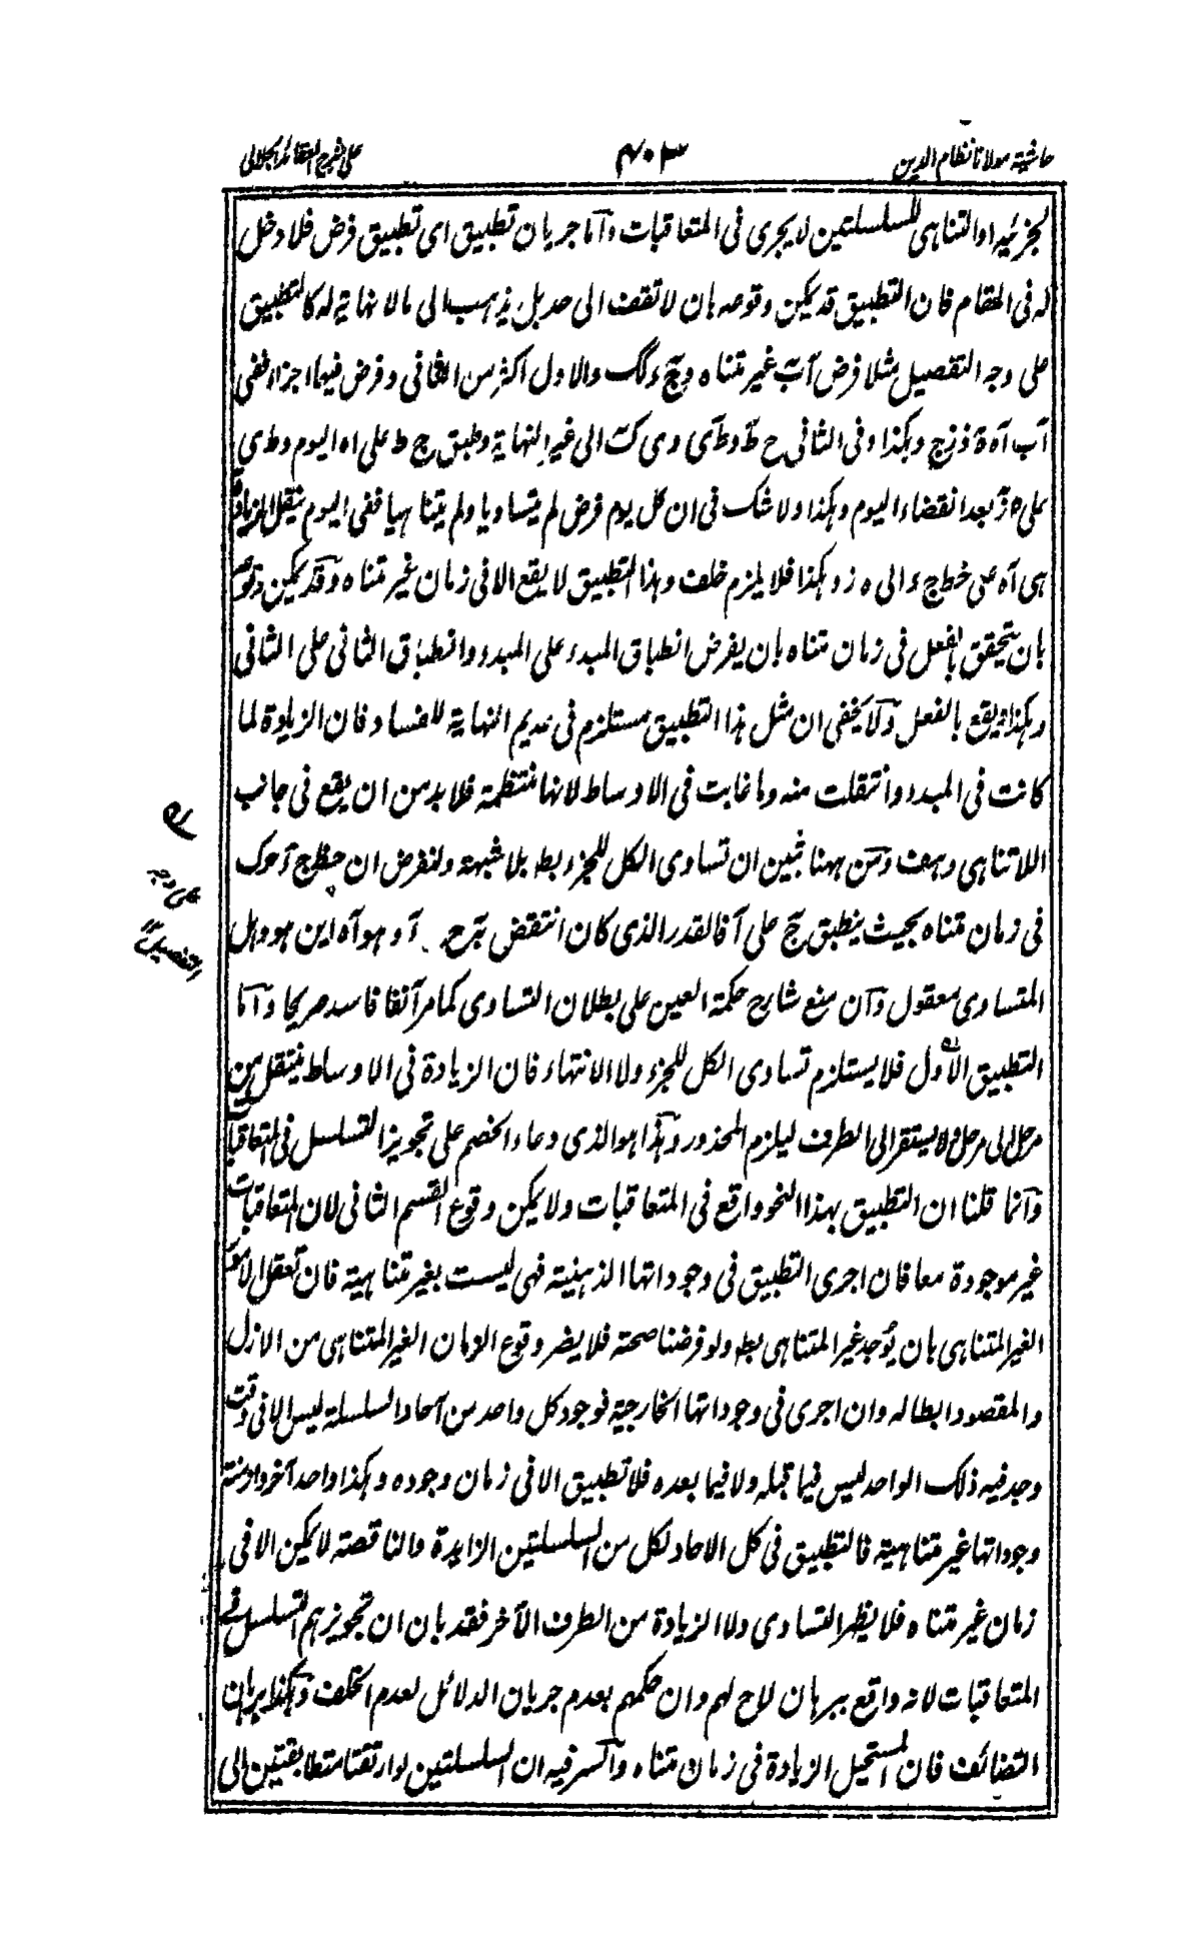 حاشية مولانا نظام الدين
٤٠٣
على شرح العقائد الجلالى
لجزئيه او التناهى للسلسلتين لا يجرى فى المتعاقبات واما جريان تطبيق اى تطبيق فرض فلا دخل
له فى المقام فان التطبيق قد يمكن وقوعه بان لا تقف الى حد بل يذهب الى ما لا نهاية له كالتطبيق
على وجه التفصيل مثلا فرض آب غير متناه وج ك والاول اكثر من الثانى وفرض فيهما اجزاء ففى
آب آه ه ز زح وهكذا وفى الثانى ح ط وط ى وى ك الى غير النهاية وطبق ح ط على اه اليوم وط ى
على ه ز بعد انقضاء اليوم وهكذا ولا شك فى ان كل يوم فرض لم يتساويا ولم يتناهيا ففى اليوم ينتقل الزيادة
هى آه من خط الى ه ز وهكذا فلا يلزم خلف وهذا التطبيق لا يقع الا فى زمان غير متناه وقد يمكن وقوعه
بان يتحقق بالفعل فى زمان متناه بان يفرض انطباق المبدء على المبدء وانطباق الثانى على الثانى
وهكذا فيقع بالفعل ولا يخفى ان مثل هذا التطبيق مستلزم فى عديم النهاية للفساد فان الزيادة لما
كانت فى المبدء وانتقلت منه وما غابت فى الاوساط لانها منتظمة فلا بد من ان يقع فى جانب
اللاتناهى وهف ومن ههنا تبين ان تساوى الكل للجزء بط بلا شبهة ولنفرض ان خط ج آ حرك
فى زمان متناه بحيث ينطبق ج على آ فالقدر الذى كان انتقض بتحرج آ و هو آه اين هو وهل
المتساوى معقول وآن منع شارح حكمة العين على بطلان التساوى كما مر آنفا فاسد صريحا واما
التطبيق الاول فلا يستلزم تساوى الكل للجزء ولا الانتهاء فان الزيادة فى الاوساط ينتقل من
مرحل الى مرحل ولا يستقر الى الطرف ليلزم المحذور وهذا هو الذى دعاء الخصم على تجويز التسلسل فى المتعاقبات
وانما قلنا ان التطبيق بهذا النحو واقع فى المتعاقبات ولا يمكن وقوع القسم الثانى لان المتعاقبات
غير موجودة معا فان اجرى التطبيق فى وجوداتها الذهنية فهى ليست بغير متناهية فان تعقل الامور
الغير المتناهى بان يوجد غير المتناهى بط ولو فرضنا صحته فلا يضر وقوع الزمان الغير المتناهى من الازل
والمقصود ابطاله وان اجرى فى وجوداتها الخارجية فوجود كل واحد من آحاد السلسلة ليس الا فى وقت
وجد فيه ذلك الواحد ليس فيما قبله ولا فيما بعده فلا تطبيق الا فى زمان وجوده وهكذا واحد آخر وازمنة
وجوداتها غير متناهية فالتطبيق فى كل الاحاد لكل من السلسلتين الزايدة والناقصة لا يمكن الا فى
زمان غير متناه فلا يظهر التساوى ولا الزيادة من الطرف الآخر فقد بان ان تجويزهم التسلسل فى
المتعاقبات لانه واقع ببرهان لاح لهم وان حكمهم بعدم جريان الدلائل لعدم الخلف وهكذا برهان
التضائف فان المستحيل الزيادة فى زمان متناه والسر فيه ان السلسلتين لو ارتقتا متطابقتين الى
على وجه
التفصيل